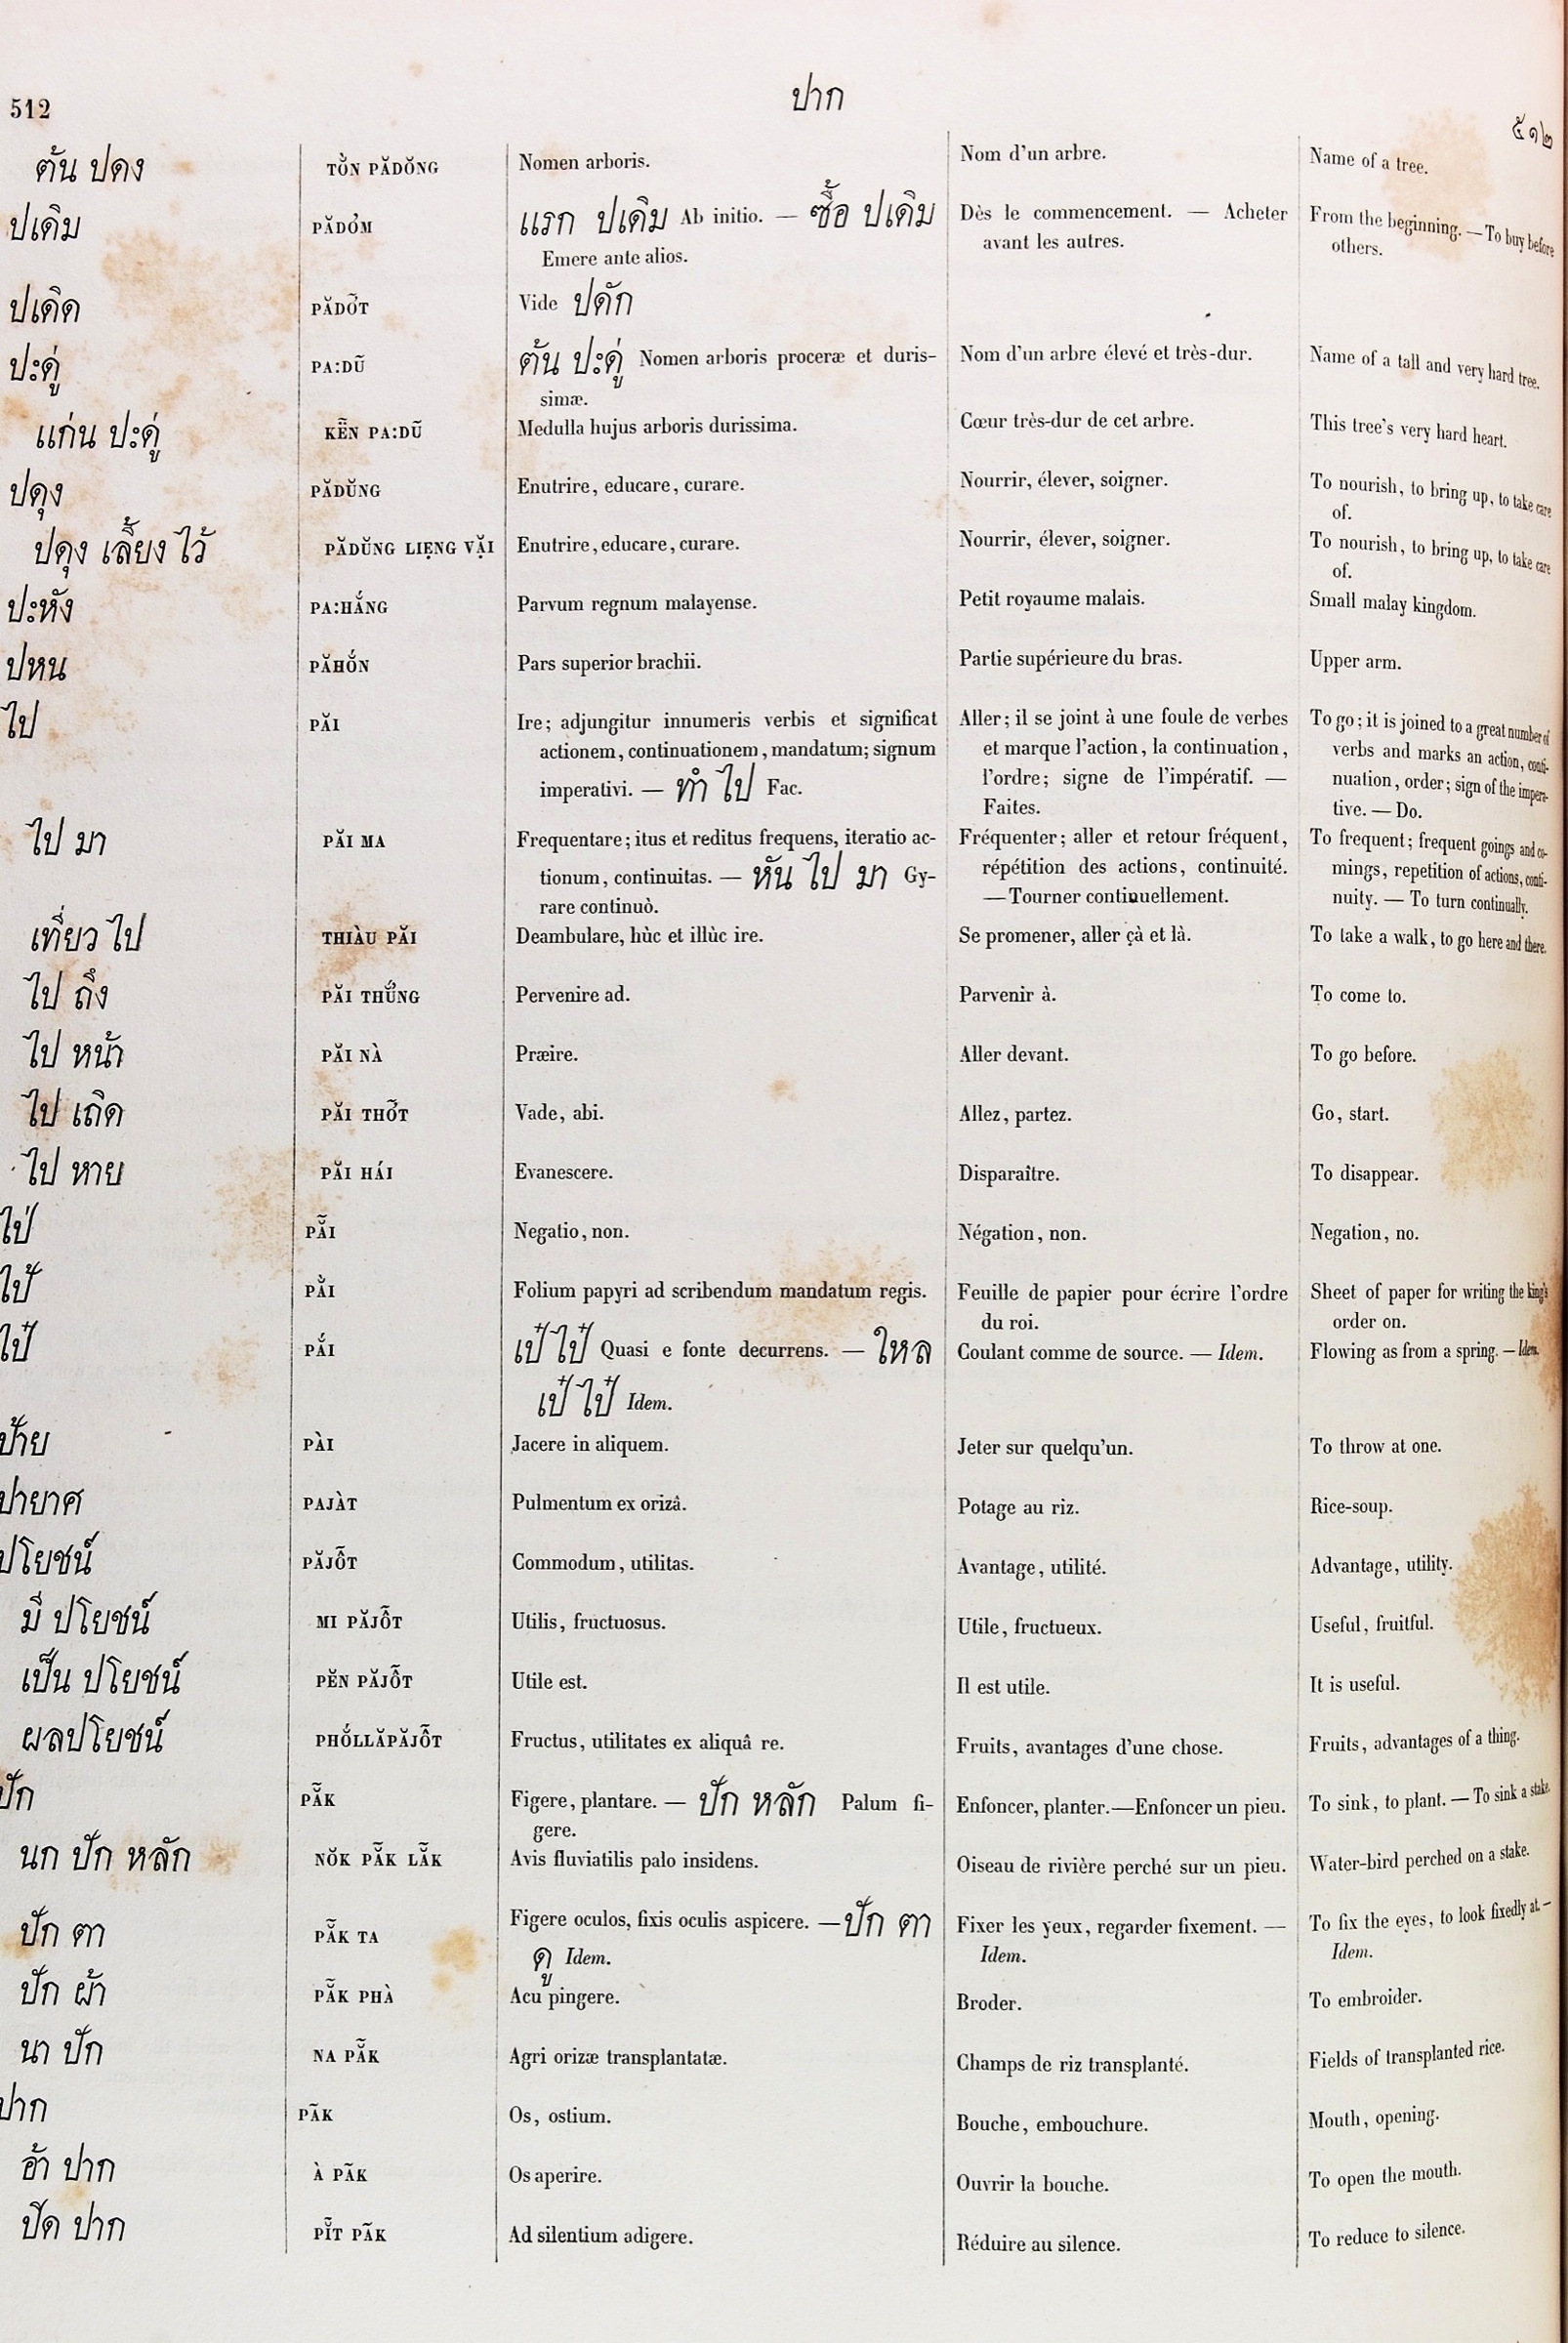 512
ปาก
๕๑๒
ต้น ปดง TÔ̆N PĂDŎNG Nomen arboris. Nom d'un arbre. Name of a tree.
ปเดิม PĂDO̓M แรก ปเดิม Ab initio. — ซื้อ ปเดิม Dès le commencement. — Acheter From the beginning. — To buy before
Emere ante alios. avant les autres. others.
ปเดิด PĂDO᷃T Vide ปดัก
ปะดู่ PA:DŨ ต้น ปะดู่ Nomen arboris proceræ et duris- Nom d'un arbre élevé et très-dur. Name of a tall and very hard tree.
simæ.
แก่น ปะดู่ KẼN PA:DŨ Medulla hujus arboris durissima. Cœur très-dur de cet arbre. This tree's very hard heart.
ปดุง PĂDŬNG Enutrire, educare, curare. Nourrir, élever, soigner. To nourish, to bring up, to take care
of.
ปดุง เลี้ยง ไว้ PĂDŬNG LIẸNG VẶI Enutrire, educare, curare. Nourrir, élever, soigner. To nourish, to bring up, to take care
of.
ปะหัง PA:HẮNG Parvum regnum malayense. Petit royaume malais. Small malay kingdom.
ปหน PĂHŎ́N Pars superior brachii. Partie supérieure du bras. Upper arm.
ไป PĂI Ire; adjungitur innumeris verbis et significat Aller; il se joint à une foule de verbes To go; it is joined to a great number of
actionem, continuationem, mandatum; signum et marque l'action, la continuation, verbs and marks an action, conti-
imperativi. — ทำ ไป Fac. l'ordre; signe de l'impératif. — nuation, order; sign of the impera-
Faites. tive. — Do.
ไป มา PĂI MA Frequentare; itus et reditus frequens, iteratio ac- Fréquenter; aller et retour fréquent, To frequent; frequent goings and co-
tionum, continuitas. — หัน ไป มา Gy- répétition des actions, continuité. mings, repetition of actions, conti-
rare continuò. — Tourner continuellement. nuity. — To turn continually.
เที่ยว ไป THIÀU PĂI Deambulare, hùc et illùc ire. Se promener, aller çà et là. To take a walk, to go here and there.
ไป ถึง PĂI THŬ́NG Pervenire ad. Parvenir à. To come to.
ไป หน้า PĂI NÀ Præire. Aller devant. To go before.
ไป เถิด PĂI THO᷃T Vade, abi. Allez, partez. Go, start.
ไป หาย PĂI HÁI Evanescere. Disparaître. To disappear.
ไป่ PẴI Negatio, non. Négation, non. Negation, no.
ไป้ PẰI Folium papyri ad scribendum mandatum regis. Feuille de papier pour écrire l'ordre Sheet of paper for writing the king's
du roi. order on.
ไป๋ PẮI เป๋ ไป๋ Quasi e fonte decurrens. — ใหล Coulant comme de source. — Idem. Flowing as from a spring. — Idem.
เป๋ ไป๋ Idem.
ป้าย PÀI Jacere in aliquem. Jeter sur quelqu'un. To throw at one.
ปายาศ PAJÀT Pulmentum ex orizâ. Potage au riz. Rice-soup.
ปโยชน์ PĂJỖT Commodum, utilitas. Avantage, utilité. Advantage, utility.
มี ปโยชน์ MI PĂJỖT Utilis, fructuosus. Utile, fructueux. Useful, fruitful.
เป็น ปโยชน์ PĔN PĂJỖT Utile est. Il est utile. It is useful.
ผลปโยชน์ PHŎ́LLĂPĂJỖT Fructus, utilitates ex aliquâ re. Fruits, avantages d'une chose. Fruits, advantages of a thing.
ปัก PẴK Figere, plantare. — ปัก หลัก Palum fi- Enfoncer, planter. — Enfoncer un pieu. To sink, to plant. — To sink a stake.
gere.
นก ปัก หลัก NŎK PẴK LẴK Avis fluviatilis palo insidens. Oiseau de rivière perché sur un pieu. Water-bird perched on a stake.
ปัก ตา PẴK TA Figere oculos, fixis oculis aspicere. — ปัก ตา Fixer les yeux, regarder fixement. — To fix the eyes, to look fixedly at. —
ดู Idem. Idem. Idem.
ปัก ผ้า PẴK PHÀ Acu pingere. Broder. To embroider.
นา ปัก NA PẴK Agri orizæ transplantatæ. Champs de riz transplanté. Fields of transplanted rice.
ปาก PÃK Os, ostium. Bouche, embouchure. Mouth, opening.
อ้า ปาก À PÃK Os aperire. Ouvrir la bouche. To open the mouth.
ปิด ปาก PĬ̃T PÃK Ad silentium adigere. Réduire au silence. To reduce to silence.